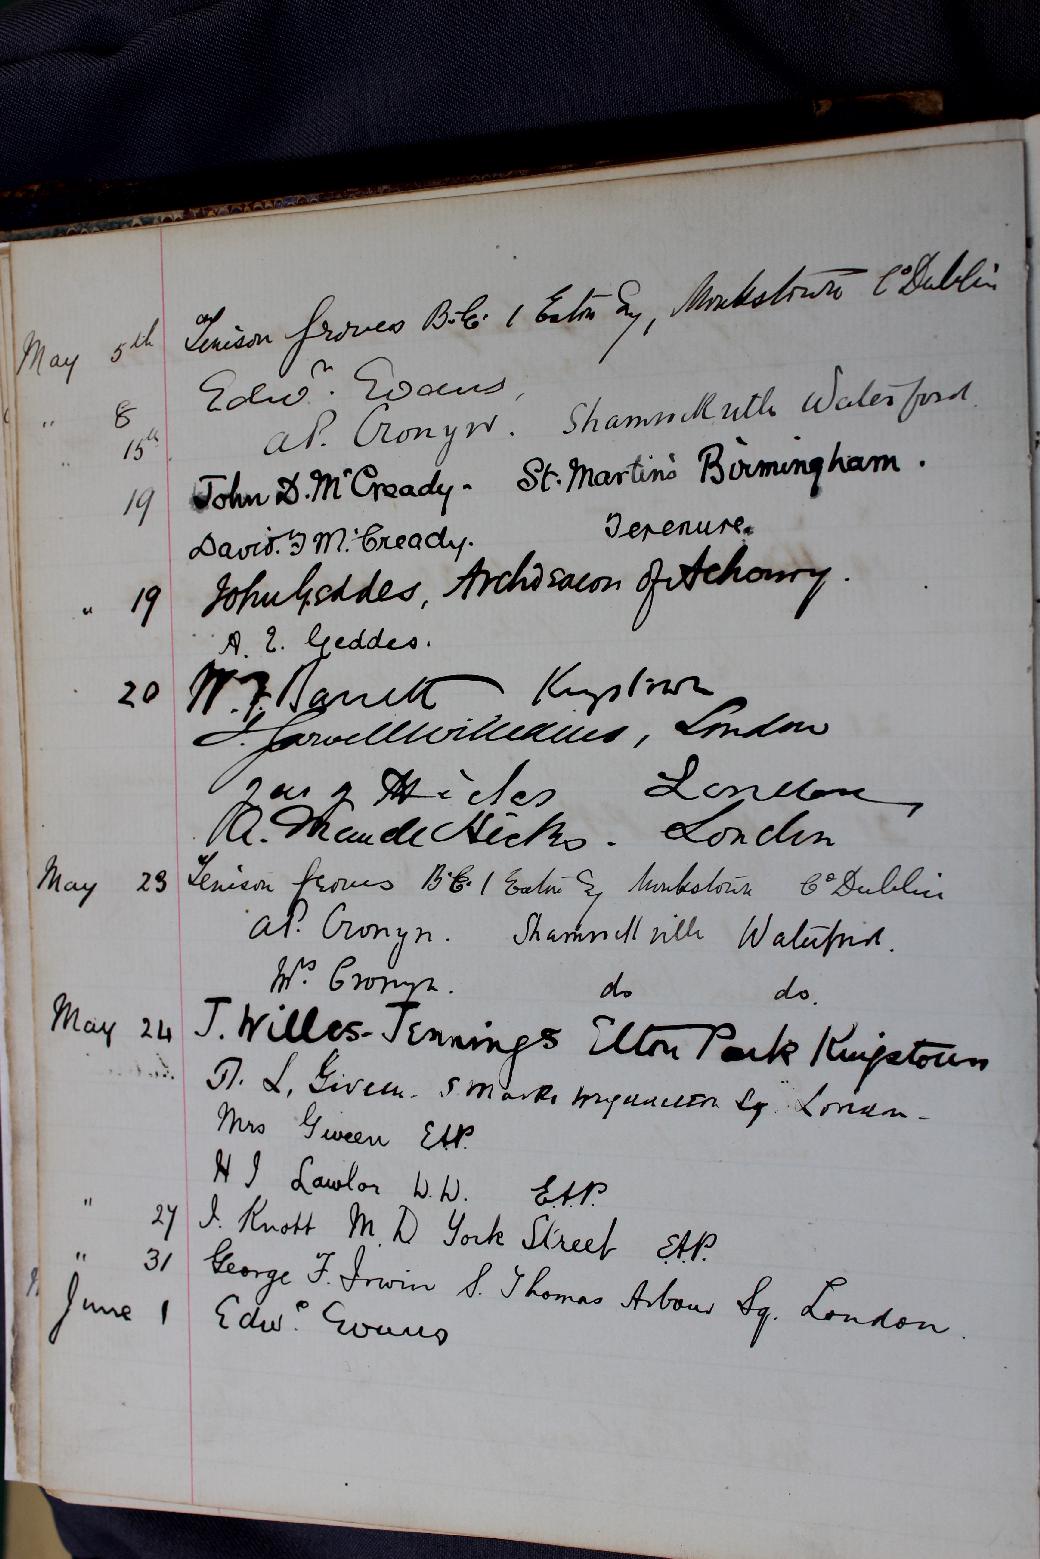 May 5th Tenison Groves B.E. 1 Eaton Sq, Monkstown Co Dublin
" 8 Edwd. Evans,
" 15th A P. Cronyn. Shamrockville Waterford
19 John D. McCready - St. Martin's Birmingham.
David. F McCready. Terenure.
" 19 John Geddes, Archdeacon of Achonry.
A. E. Geddes.
20 W. F. Barrett Kingstown
J. Williams, London
Hicks London
A. Maude Hicks. London
May 23 Tenison Groves B.E. 1 Eaton Sq Monkstown Co Dublin
A P. Cronyn. Shamrockville Waterford.
Mrs Cronyn. do do.
May 24 J. Willes-Jennings Elton Park Kingstown
L. Giveen. Sq. London -
Mrs Giveen
H J Lawlor
" 27 J. Knott M. D York Street
" 31 George F. Irwin S. Thomas Arbour Sq. London.
June 1 Edwd. Evans